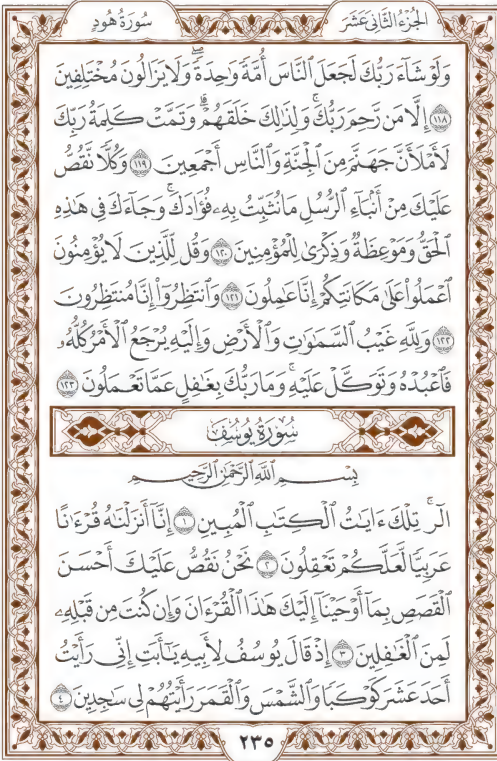 الجزء الثاني عشر
سورة هود
وَلَوْ شَآءَ رَبُّكَ لَجَعَلَ ٱلنَّاسَ أُمَّةً وَٰحِدَةً ۖ وَلَا يَزَالُونَ مُخْتَلِفِينَ
﴿١١٨﴾ إِلَّا مَن رَّحِمَ رَبُّكَ ۚ وَلِذَٰلِكَ خَلَقَهُمْ ۗ وَتَمَّتْ كَلِمَةُ رَبِّكَ
لَأَمْلَأَنَّ جَهَنَّمَ مِنَ ٱلْجِنَّةِ وَٱلنَّاسِ أَجْمَعِينَ ﴿١١٩﴾ وَكُلًّا نَّقُصُّ
عَلَيْكَ مِنْ أَنۢبَآءِ ٱلرُّسُلِ مَا نُثَبِّتُ بِهِۦ فُؤَادَكَ ۚ وَجَآءَكَ فِى هَٰذِهِ
ٱلْحَقُّ وَمَوْعِظَةٌ وَذِكْرَىٰ لِلْمُؤْمِنِينَ ﴿١٢٠﴾ وَقُل لِّلَّذِينَ لَا يُؤْمِنُونَ
ٱعْمَلُوا۟ عَلَىٰ مَكَانَتِكُمْ إِنَّا عَٰمِلُونَ ﴿١٢١﴾ وَٱنتَظِرُوٓا۟ إِنَّا مُنتَظِرُونَ
﴿١٢٢﴾ وَلِلَّهِ غَيْبُ ٱلسَّمَٰوَٰتِ وَٱلْأَرْضِ وَإِلَيْهِ يُرْجَعُ ٱلْأَمْرُ كُلُّهُۥ
فَٱعْبُدْهُ وَتَوَكَّلْ عَلَيْهِ ۚ وَمَا رَبُّكَ بِغَٰفِلٍ عَمَّا تَعْمَلُونَ ﴿١٢٣﴾
سورة يوسف
بِسْمِ ٱللَّهِ ٱلرَّحْمَٰنِ ٱلرَّحِيمِ
الٓر ۚ تِلْكَ ءَايَٰتُ ٱلْكِتَٰبِ ٱلْمُبِينِ ﴿١﴾ إِنَّآ أَنزَلْنَٰهُ قُرْءَٰنًا
عَرَبِيًّا لَّعَلَّكُمْ تَعْقِلُونَ ﴿٢﴾ نَحْنُ نَقُصُّ عَلَيْكَ أَحْسَنَ
ٱلْقَصَصِ بِمَآ أَوْحَيْنَآ إِلَيْكَ هَٰذَا ٱلْقُرْءَانَ وَإِن كُنتَ مِن قَبْلِهِۦ
لَمِنَ ٱلْغَٰفِلِينَ ﴿٣﴾ إِذْ قَالَ يُوسُفُ لِأَبِيهِ يَٰٓأَبَتِ إِنِّى رَأَيْتُ
أَحَدَ عَشَرَ كَوْكَبًا وَٱلشَّمْسَ وَٱلْقَمَرَ رَأَيْتُهُمْ لِى سَٰجِدِينَ ﴿٤﴾
٢٣٥